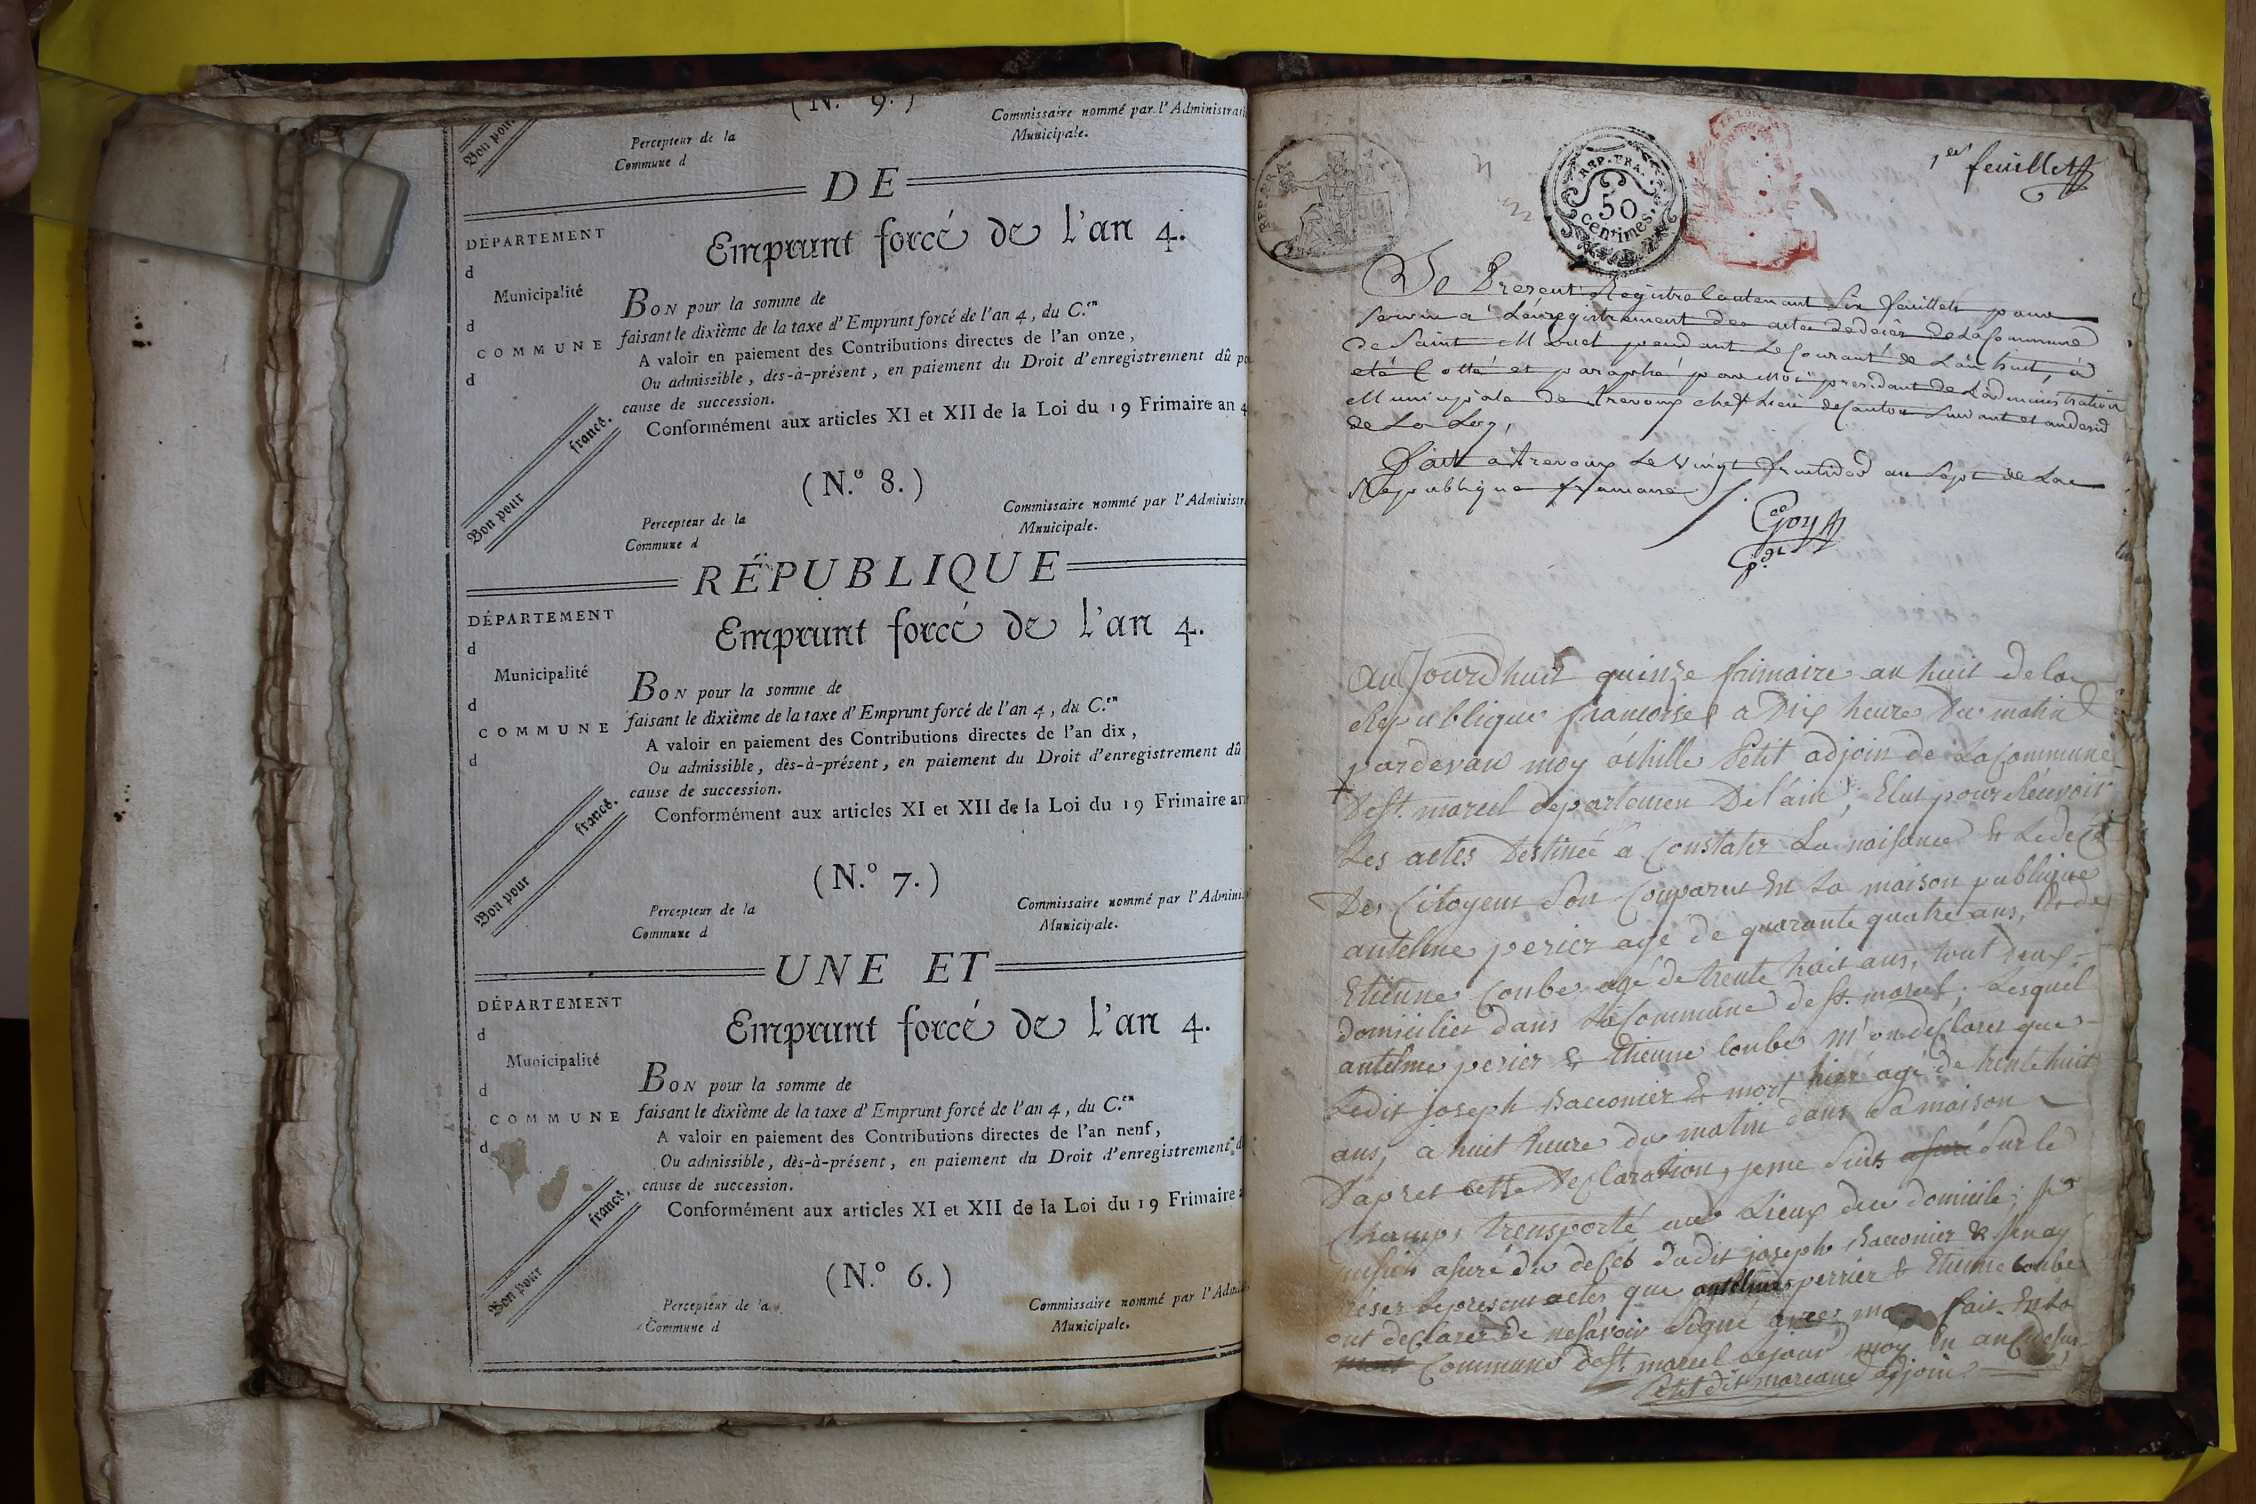 (N.º 9.)
Bon pour
Percepteur de la
Commune d
Commissaire nommé par l'Administrati
Municipale.
DE
DÉPARTEMENT
d
Municipalité
d
COMMUNE
d
Emprunt forcé de l'an 4.
BON pour la somme de
faisant le dixième de la taxe d'Emprunt forcé de l'an 4, du C.en
A valoir en paiement des Contributions directes de l'an onze,
Ou admissible, dès-à-présent, en paiement du Droit d'enregistrement dû po
cause de succession.
Conformément aux articles XI et XII de la Loi du 19 Frimaire an 4
Bon pour francs.
(N.º 8.)
Percepteur de la
Commune d
Commissaire nommé par l'Administr
Municipale.
RÉPUBLIQUE
DÉPARTEMENT
d
Municipalité
d
COMMUNE
d
Emprunt forcé de l'an 4.
BON pour la somme de
faisant le dixième de la taxe d'Emprunt forcé de l'an 4, du C.en
A valoir en paiement des Contributions directes de l'an dix,
Ou admissible, dès-à-présent, en paiement du Droit d'enregistrement dû
cause de succession.
Conformément aux articles XI et XII de la Loi du 19 Frimaire an
Bon pour francs.
(N.º 7.)
Percepteur de la
Commune d
Commissaire nommé par l'Admini
Municipale.
UNE ET
DÉPARTEMENT
d
Municipalité
d
COMMUNE
d
Emprunt forcé de l'an 4.
BON pour la somme de
faisant le dixième de la taxe d'Emprunt forcé de l'an 4, du C.en
A valoir en paiement des Contributions directes de l'an neuf,
Ou admissible, dès-à-présent, en paiement du Droit d'enregistrement d
cause de succession.
Conformément aux articles XI et XII de la Loi du 19 Frimaire a
Bon pour francs.
(N.º 6.)
Percepteur de la
Commune d
Commissaire nommé par l'Admi
Municipale.
REP. FRA.
REP. FRA.
50
centimes.
1er feuillet
Le Present Registre Contenant Six feuillets pour
servir a L'enregistrement des actes de deces de la Commune
de Saint Marcel pendant Le Courant de L'an huit, a
été Cotté et paraphé par moi president de L'administration
Municipale de Trevoux chef Lieu de Canton Suivant et au desir
de La Loy,
Fait a Trevoux Le Vingt fructidor an Sept de La
Republique francaise
Goy
pdt
aujourdhuit quinze frimaire an huit de la
Republique francoise a Dix heure Du matin
pardevan moy achille Petit adjoin de La Commune
De St. marcel departemen De l'ain, Elut pour Récevoir
Les actes Destinéé a Constater La naisance Et Le decé
Des Citoyens Son Comparut En La maison publique
antelme perier agé de quarante quatre ans, Et de
Etienne Coube agé de trente huit ans, tout deux
domicilier dans La Commune de St. marcel, Lesquel
antelme perier & Etienne Coube M'on declarer que
Ledit joseph Bacconier Et mort hier agé de trente huit
ans, a huit heure du matin dans Sa maison
D'apret Cette Declaration, je me Suits asuré Sur le
Champ, trensporté au Lieux du domicile; je
me suis asuré du deCéé dudit joseph Bacconier & jenay
Réser Le present actes que antelme perrier & Etienne Coube
ont declarer de nesavoir Signé avec moy fait En La
Commune de St marcel Le jour moy En an Cy desu
Petit dit marcand adjoin